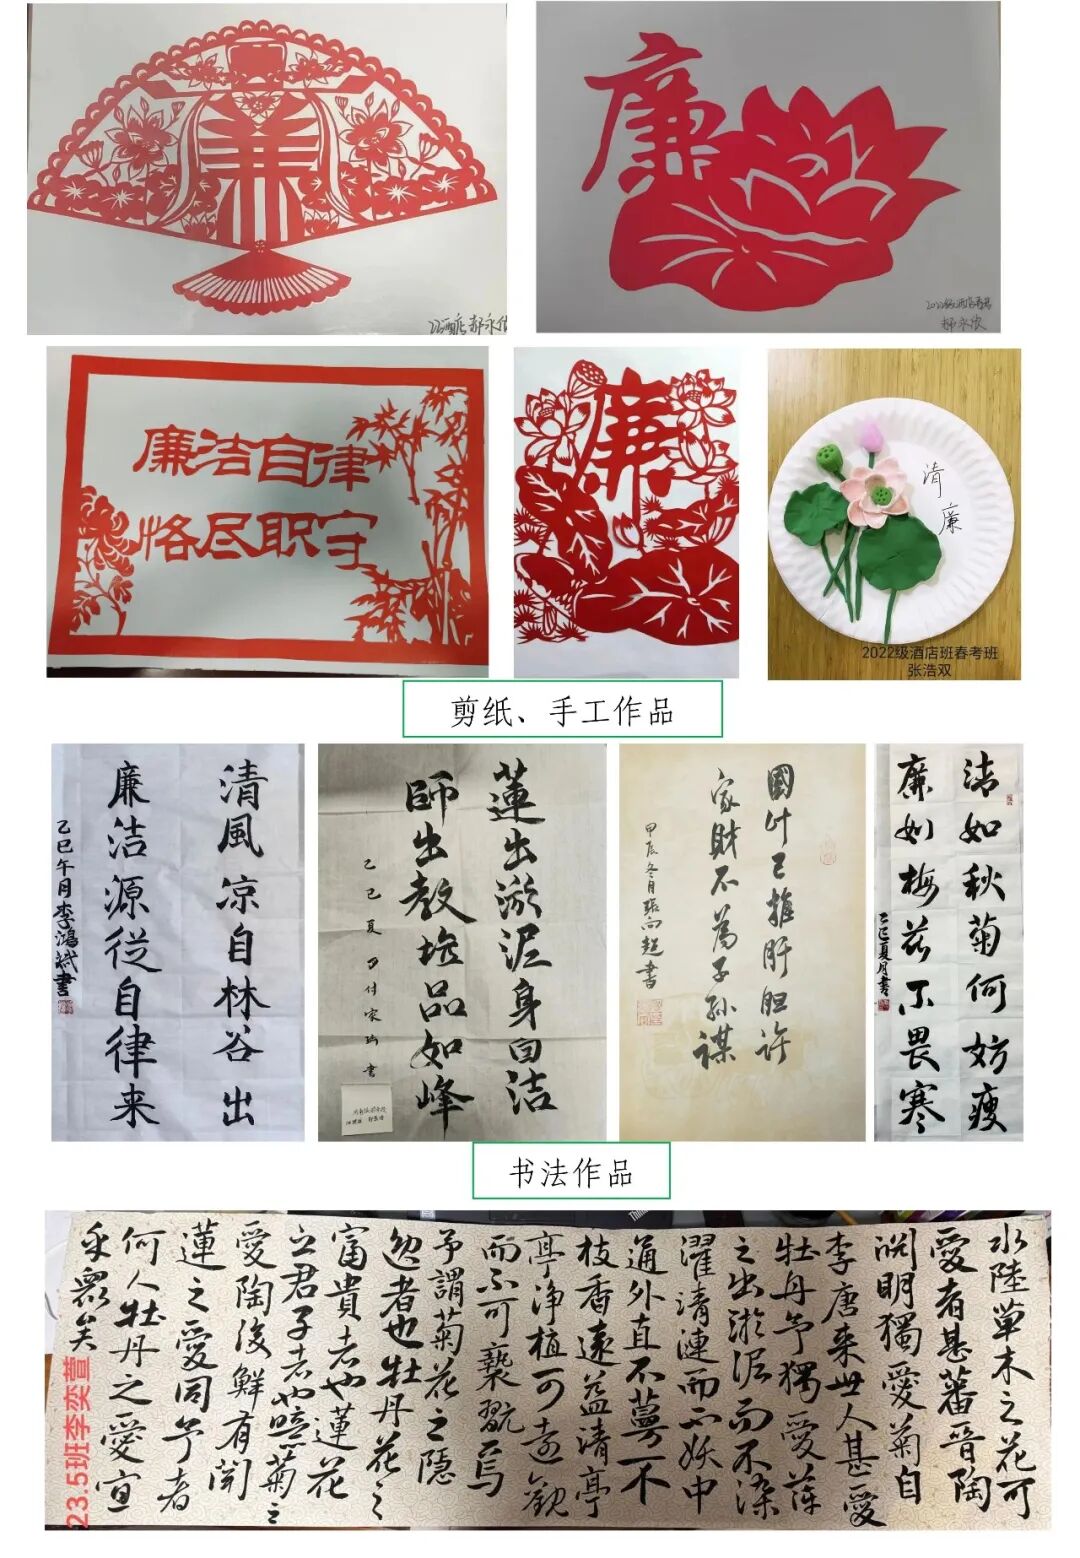 廉
22酒店郝永欣
廉
2022级酒店春考
郝永欣
廉洁自律
恪尽职守
廉
清
廉
2022级酒店班春考班
张浩双
剪纸、手工作品
清風凉自林谷出
廉洁源從自律来
乙巳午月李鴻斌書
蓮出淤泥身自洁
師出教坛品如峰
乙巳夏月付家書
國计已推肝胆许
家財不為子孫謀
甲辰冬月張向超書
洁如秋菊何妨瘦
廉如梅花不畏寒
乙巳夏月書
书法作品
水陸草木之花可
愛者甚蕃晉陶
淵明獨愛菊自
李唐来世人甚愛
牡丹予獨愛蓮
之出淤泥而不染
濯清漣而不妖中
通外直不蔓不
枝香遠益清亭
亭净植可遠觀
而不可褻翫焉
予謂菊花之隱
逸者也牡丹花之
富貴者也蓮花
之君子者也噫菊之
愛陶後鮮有聞
蓮之愛同予者
何人牡丹之愛宜
乎衆矣
23.5班李奕萱